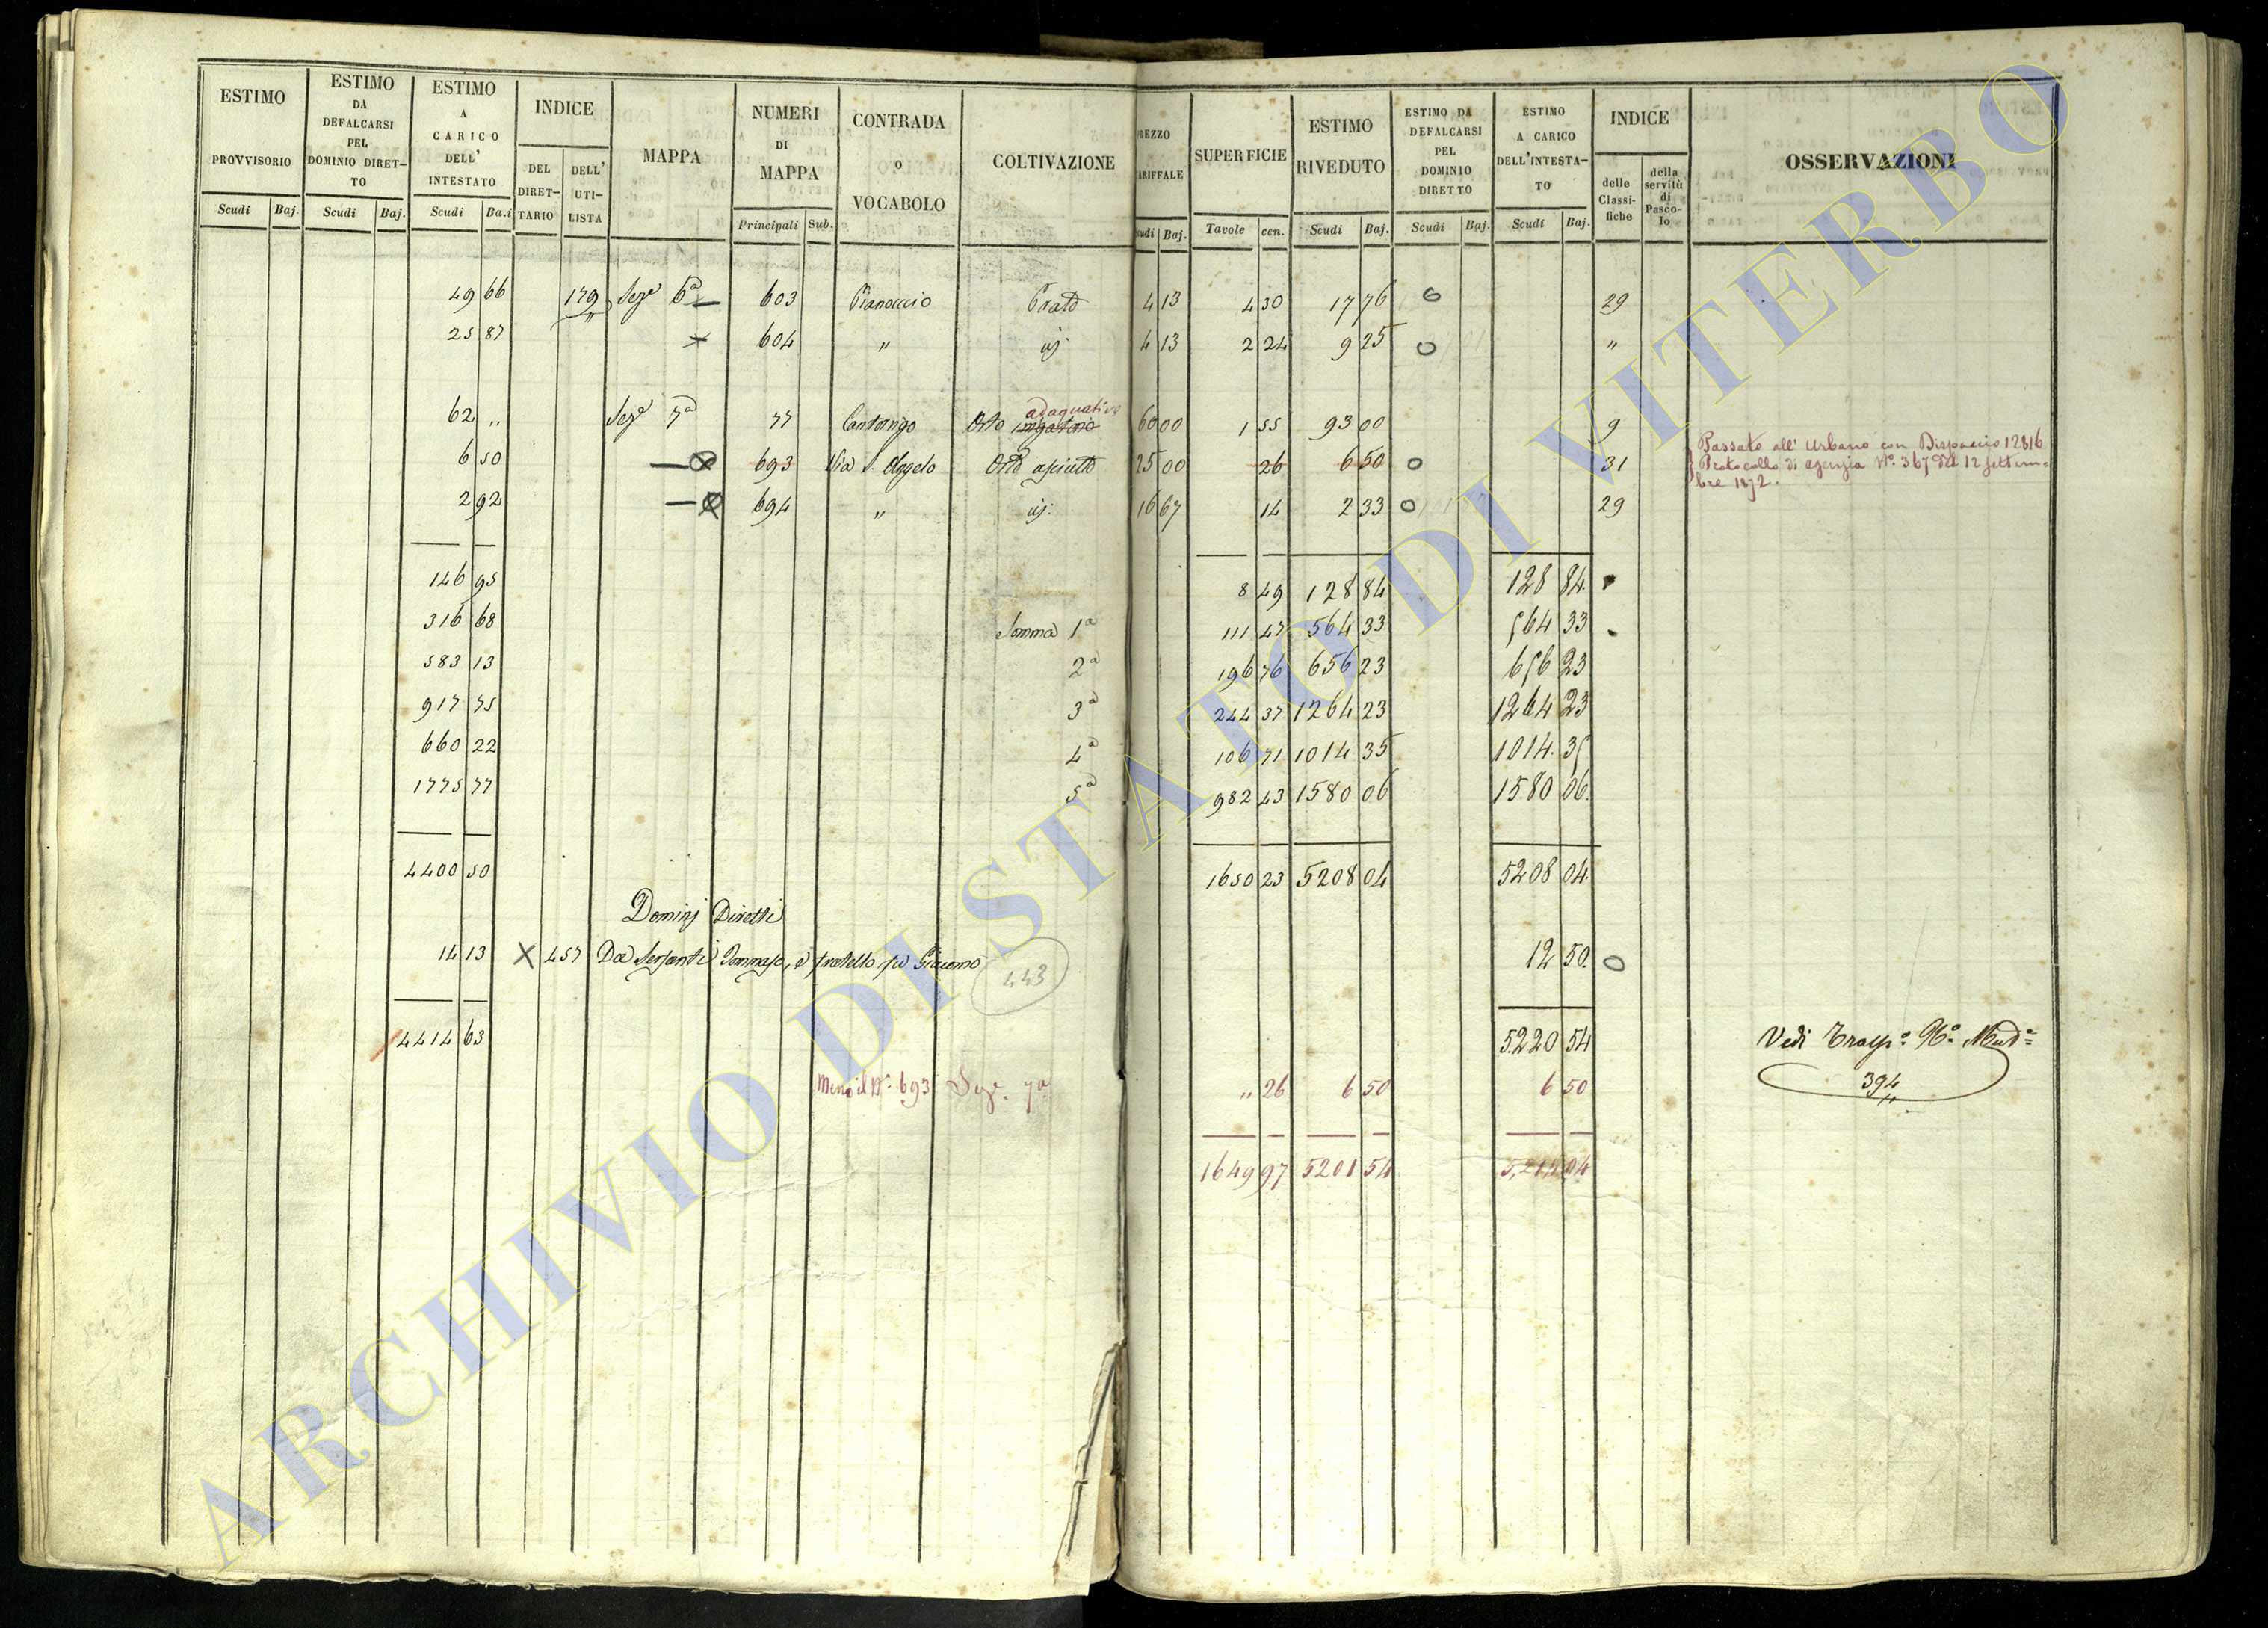 ESTIMO PROVVISORIO
Scudi Baj.
ESTIMO DA DEFALCARSI PEL DOMINIO DIRET-TO
Scudi Baj.
ESTIMO A CARICO DELL' INTESTATO
Scudi Ba.i
INDICE
DEL DIRET-TARIO
DELL' UTI-LISTA
MAPPA
NUMERI DI MAPPA
Principali Sub.
CONTRADA O VOCABOLO
COLTIVAZIONE
PREZZO TARIFFALE
Scudi Baj.
SUPERFICIE
Tavole cen.
ESTIMO RIVEDUTO
Scudi Baj.
ESTIMO DA DEFALCARSI PEL DOMINIO DIRETTO
Scudi Baj.
ESTIMO A CARICO DELL'INTESTA-TO
Scudi Baj.
INDICE
delle Classi-fiche
della servitù di Pasco-lo
OSSERVAZIONI
49 66 179 Sez.e 6a 603 Pianaccio Prato 4 13 4 30 17 76 29
25 87 604 " id. 4 13 2 24 9 25 "
62 " Sez.e 7a 77 Orto irrigatorio adaquativo 60 00 1 55 93 00 9
6 50 693 Via S. Angelo Orto asciutto 25 00 26 6 50 31
Passato all' Urbano con Dispaccio 12816
Protocollo di agenzia No. 367 del 12 settem=
bre 1872.
2 92 694 " id. 16 67 14 2 33 29
146 95 8 49 128 84 128 84
316 68 Somma 1a 111 47 564 33 564 33
583 13 2a 196 76 656 23 656 23
917 75 3a 244 37 1264 23 1264 23
660 22 4a 106 71 1014 35 1014 35
1775 77 5a 982 43 1580 06 1580 06
4400 50 1650 23 5208 04 5208 04
Dominj Diretti
14 13 X 457 Da Sersanti Tommaso, e fratello fu Giacomo 443 12 50
4414 63 5220 54 Vedi No.
394
Meno il No. 693 Sez.e 7a " 26 6 50 6 50
1649 97 5201 54 5214 04
ARCHIVIO DI STATO DI VITERBO